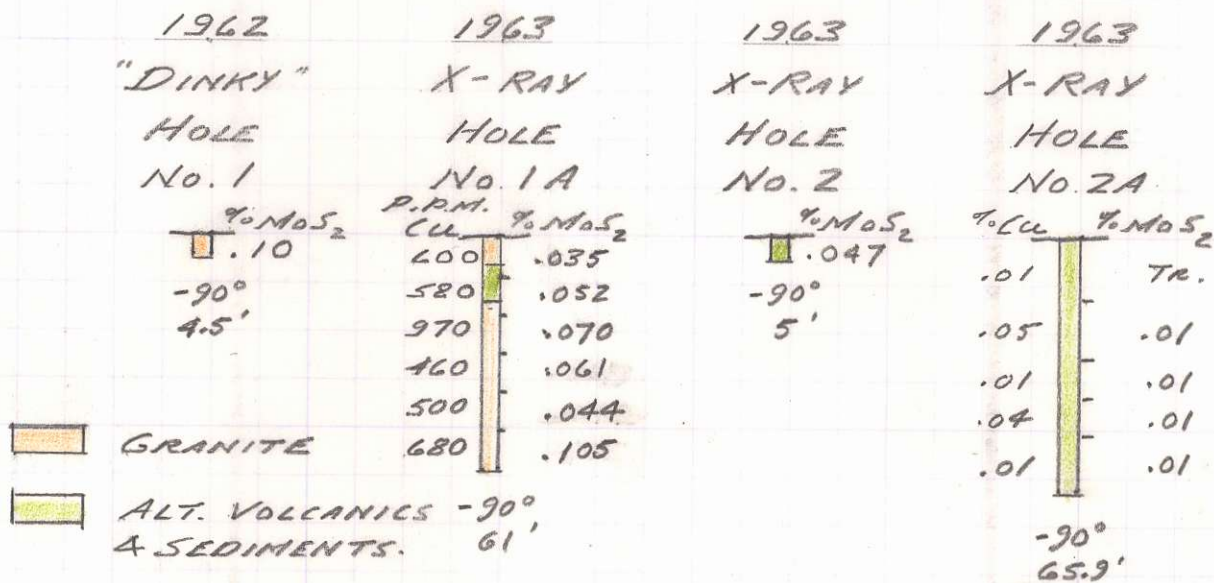 1962
"DINKY"
HOLE
No. 1
%MoS2
.10
-90°
4.5'
1963
X-RAY
HOLE
No. 1A
P.P.M.
Cu %MoS2
600 .035
580 .052
970 .070
460 .061
500 .044
680 .105
-90°
61'
1963
X-RAY
HOLE
No. 2
%MoS2
.047
-90°
5'
1963
X-RAY
HOLE
No. 2A
%Cu %MoS2
.01 TR.
.05 .01
.01 .01
.04 .01
.01 .01
-90°
65.9'
GRANITE
ALT. VOLCANICS
& SEDIMENTS.